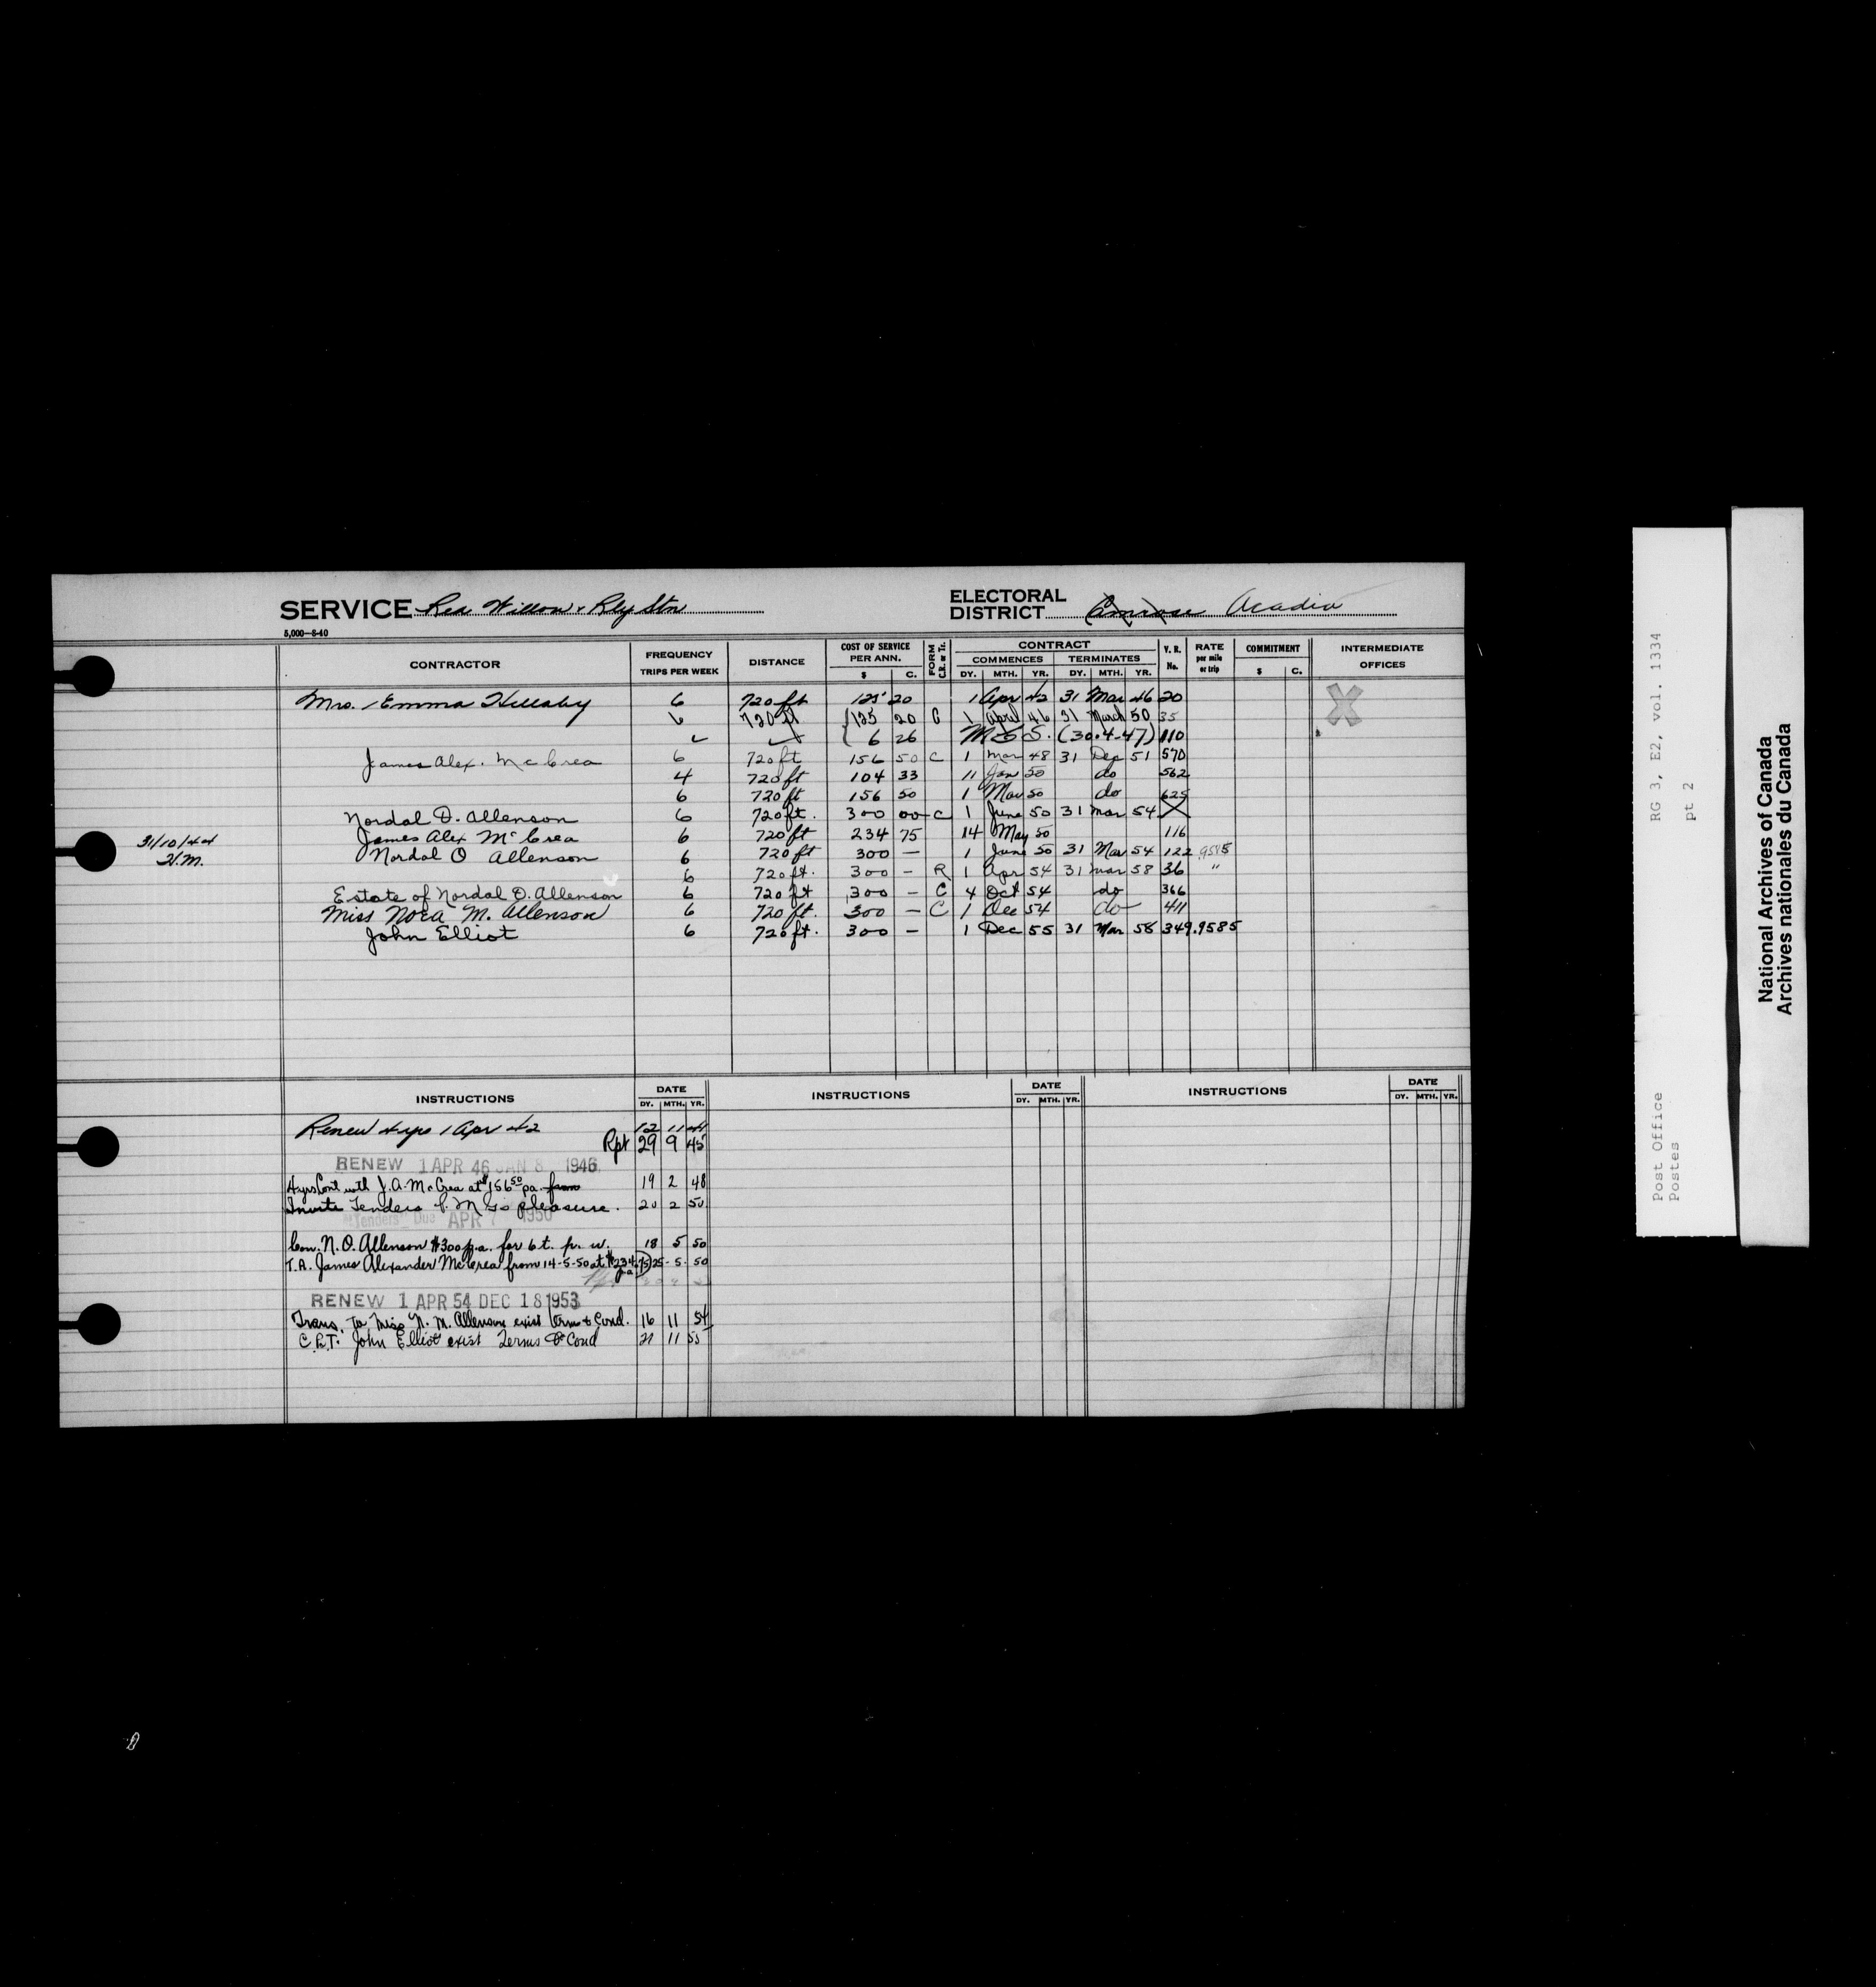 SERVICE Red Willow & Rly Stn
ELECTORAL DISTRICT Camrose Acadia
5,000—8-40
CONTRACTOR FREQUENCY TRIPS PER WEEK DISTANCE COST OF SERVICE PER ANN. $ C. FORM C.R. or Tr. CONTRACT COMMENCES DY. MTH. YR. TERMINATES DY. MTH. YR. V. R. No. RATE per mile or trip COMMITMENT $ C. INTERMEDIATE OFFICES
Mrs. Emma Hillsby 6 720 ft 125 20 1 Apr 42 31 Mar 46 20
6 720 ft 125 20 C 1 April 46 31 March 50 35
6 26 M S S. (30.4.47) 110
James Alex. McCrea 6 720 ft 156 50 C 1 Mar 48 31 Dec 51 570
4 720 ft 104 33 11 Jan 50 do 562
6 720 ft 156 50 1 Mar 50 do 625
Nordal O. Allenson 6 720 ft. 300 00 C 1 June 50 31 Mar 54
31/10/44
James Alex McCrea 6 720 ft 234 75 14 May 50 116
H.M.
Nordal O Allenson 6 720 ft 300 — 1 June 50 31 Mar 54 122 .9585
6 720 ft. 300 — R 1 Apr 54 31 Mar 58 36 "
Estate of Nordal O. Allenson 6 720 ft 300 — C 4 Oct 54 do 366
Miss Nora M. Allenson 6 720 ft. 300 — C 1 Dec 54 do 411
John Elliot 6 720 ft. 300 — 1 Dec 55 31 Mar 58 349 .9585
INSTRUCTIONS DATE DY. MTH. YR. INSTRUCTIONS DATE DY. MTH. YR. INSTRUCTIONS DATE DY. MTH. YR.
Renew 4 yrs 1 Apr 42 12 11 41
Rpt 29 9 45
RENEW 1 APR 46 JAN 8 1946
4 yrs Cont with J.A. McCrea at $156 50 pa. from 19 2 48
Invite Tenders P.M G's pleasure. 20 2 50
Tenders Due APR 7 1950
Con. N. O. Allenson $300 p.a. for 6 t. p. w. 18 5 50
T.A. James Alexander McCrea from 14-5-50 at $234.75 pa 25 5 50
RENEW 1 APR 54 DEC 18 1953
Trans. to Miss N. M. Allenson exist terms & Cond. 16 11 54
C.R.T. John Elliot exist Terms & Cond 21 11 55
Post Office RG 3, E2, vol. 1334
Postes pt 2
National Archives of Canada
Archives nationales du Canada